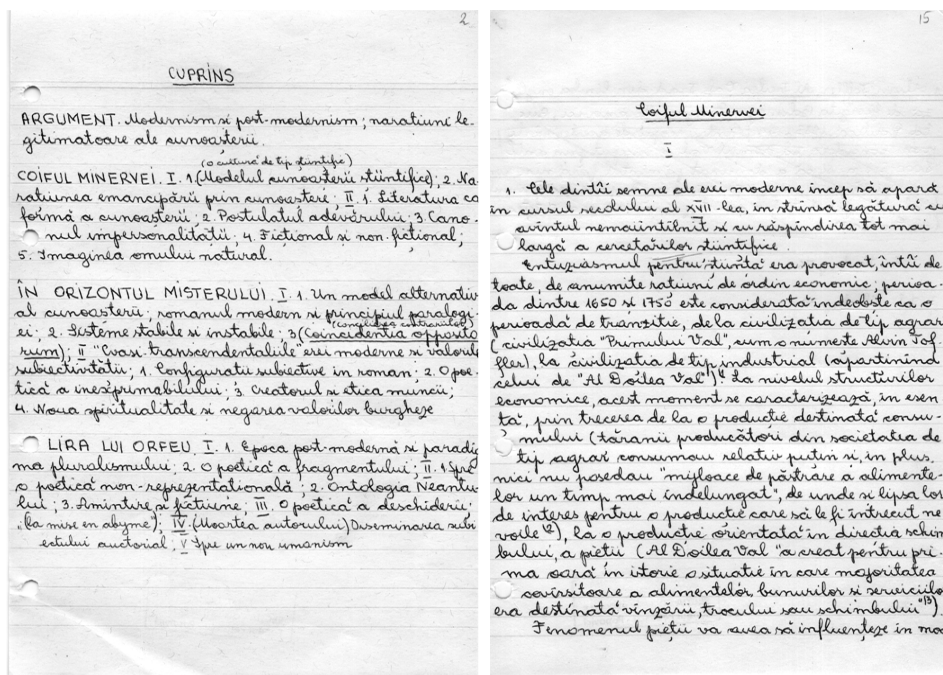 2
CUPRINS
ARGUMENT. Modernism si post-modernism; naratiuni le-
gitimatoare ale cunoasterii.
(o cultură de tip stiintific)
COIFUL MINERVEI. I. 1. (Modelul cunoasterii stiintifice); 2. Na-
ratiunea emancipării prin cunoastere; II. 1. Literatura ca
formă a cunoasterii; 2. Postulatul adevărului; 3. Cano-
nul impersonalitatii; 4. Fictional si non-fictional;
5. Imaginea omului natural.
ÎN ORIZONTUL MISTERULUI. I. 1. Un model alternativ
al cunoasterii; romanul modern si principiul paralogi-
ei; 2. Sisteme stabile si instabile; 3. (Coincidentia opposito
rum); II "Cvasi-transcendentaliile erei moderne si valorile
subiectivitătii; 1. Configuratii subiective în roman; 2. O poe-
tică a inexprimabilului; 3. Creatorul si etica muncii;
4. Noua spiritualitate si negarea valorilor burgheze
LIRA LUI ORFEU. I. 1. Epoca post-modernă si paradig
ma pluralismului; 2. O poetică a fragmentului; II. 1. Spre
o poetică non-reprezentatională; 2. Ontologia Neantu-
lui; 3. Amintire si fictiune; III. O poetică a deschiderii;
(la mise en abyme); IV. (Moartea autorului) Diseminarea subi
ectului auctorial; V Spre un nou umanism
15
Coiful Minervei
I
1. Cele dintîi semne ale erei moderne încep să apară
în cursul secolului al XVII-lea, în strînsă legătură cu
avîntul nemaiîntîlnit si cu răspîndirea tot mai
largă a cercetărilor stiintifice.
Entuziasmul pentru stiintă era provocat, întîi de
toate, de anumite ratiuni de ordin economic; perioa-
da dintre 1650 si 1750 este considerată îndeobste ca o
perioadă de tranzitie, de la civilizatia de tip agrar
(civilizatia "Primului Val", cum o numeste Alvin Tof-
fler), la civilizatia de tip industrial (apartinînd
celui de "Al Doilea Val")¹ La nivelul structurilor
economice, acest moment se caracterizează, în esen
tă, prin trecerea de la o productie destinată consu-
mului (tăranii producători din societatea de
tip agrar consumau relativ putin si, în plus,
nici nu posedau "mijloace de păstrare a alimente-
lor un timp mai îndelungat", de unde si lipsa lor
de interes pentru o productie care să le fi întrecut ne
voile⁽²⁾), la o productie orientată în directia schim
bului, a pietii (Al Doilea Val "a creat pentru pri-
ma oară în istorie o situatie în care majoritatea
covîrsitoare a alimentelor, bunurilor si serviciilo
era destinată vînzării, trocului sau schimbului"⁽³⁾)
Fenomenul pietii va avea să influenteze în mod